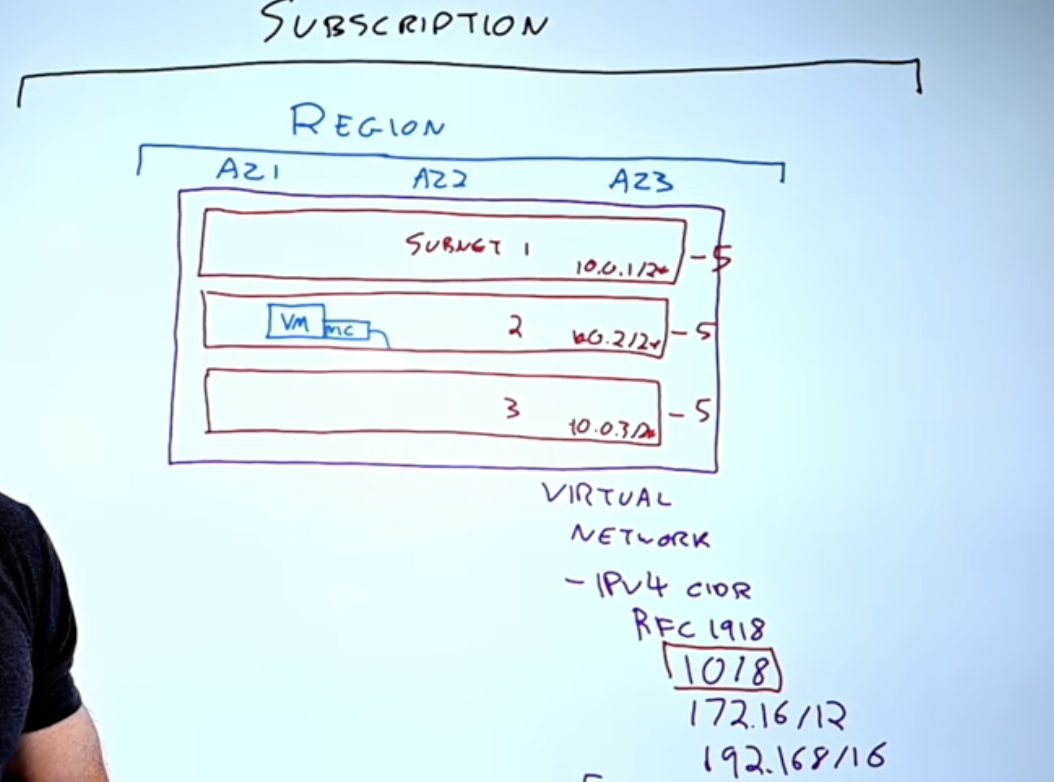 SUBSCRIPTION
REGION
AZ1 AZ2 AZ3
SUBNET 1
10.0.1/24 -5
VM NIC 2 -5
3 10.0.3/24 -5
VIRTUAL
NETWORK
- IPV4 CIDR
RFC 1918
10/8
172.16/12
192.168/16